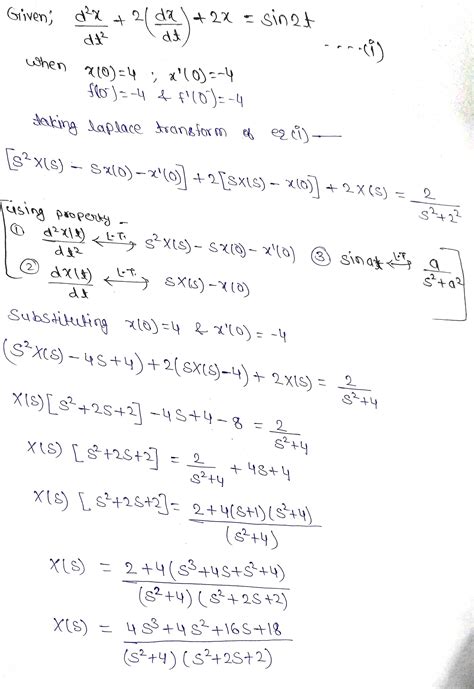 Given; d²x/dt² + 2(dx/dt) + 2x = sin2t ....(i)
when x(0)=4 ; x'(0)=-4
f(0⁻)=-4 & f'(0⁻)=-4
taking laplace transform of eq(i) —
[s²X(s) - sx(0) - x'(0)] + 2[sX(s) - x(0)] + 2X(s) = 2/(s²+2²)
using property -
① d²x(t)/dt² ⟷L.T. s²X(s) - sx(0) - x'(0) ③ sinat ⟷L.T. a/(s²+a²)
② dx(t)/dt ⟷L.T. sX(s) - x(0)
Substituting x(0)=4 & x'(0) = -4
(s²X(s) - 4s+4) + 2(sX(s)-4) + 2X(s) = 2/(s²+4)
X(s)[s²+2s+2] - 4s+4-8 = 2/(s²+4)
X(s) [s²+2s+2] = 2/(s²+4) + 4s+4
X(s) [s²+2s+2] = 2+4(s+1)(s²+4)/(s²+4)
X(s) = 2+4(s³+4s+s²+4)/(s²+4)(s²+2s+2)
X(s) = 4s³+4s²+16s+18/(s²+4)(s²+2s+2)